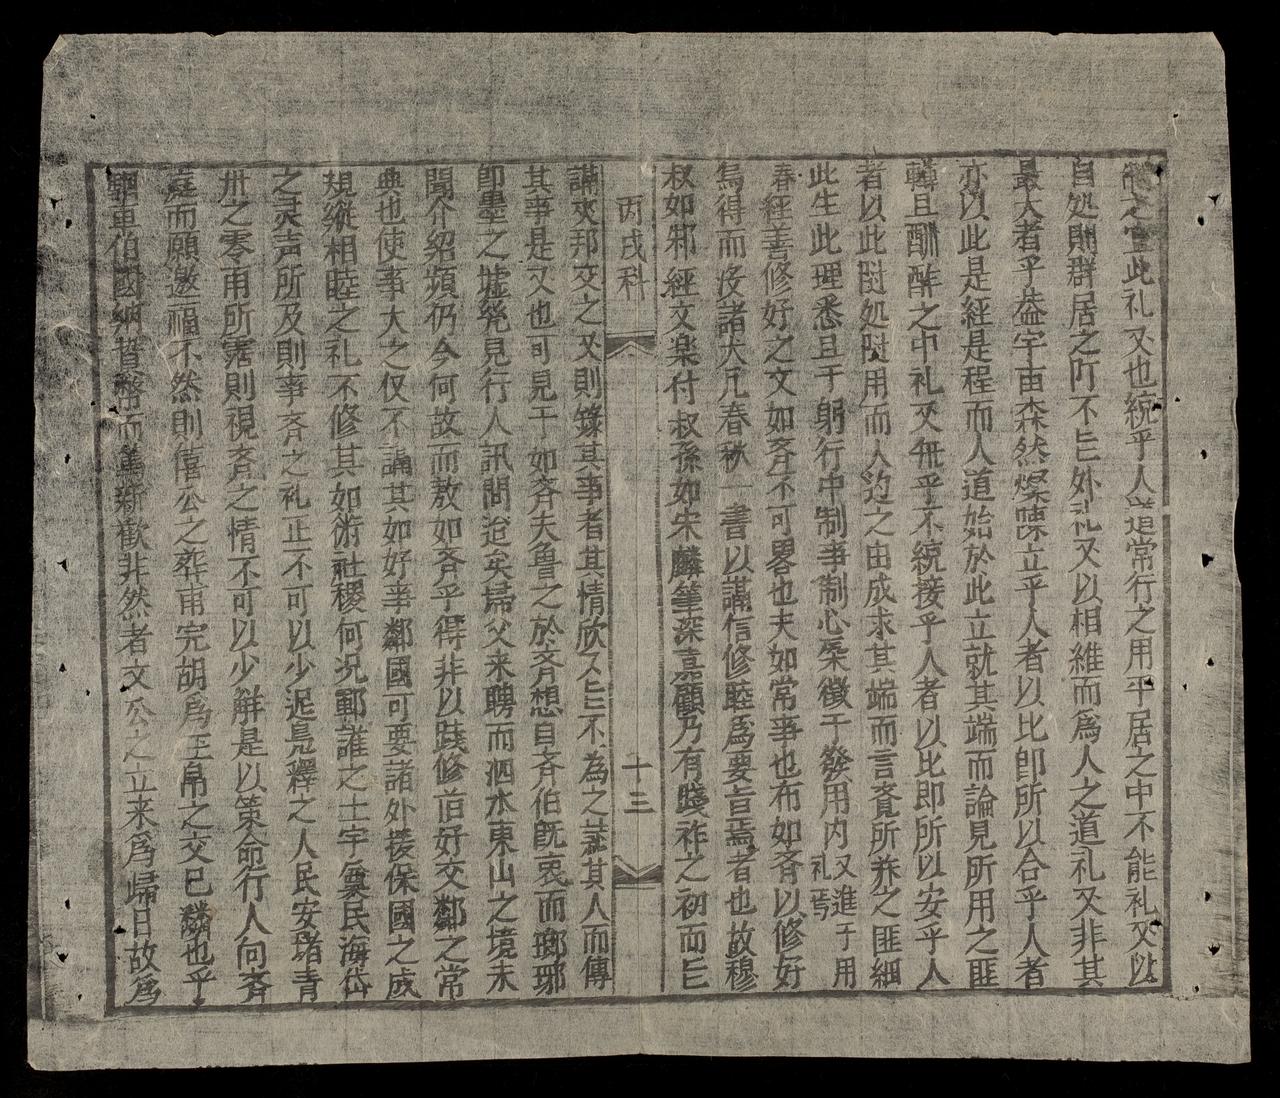 之宜此礼又也統乎人道常行之用乎居之中不能礼又以
自処則群居之所不亡外礼又以相維而為人之道礼又非其
最大者乎盖宇宙森然燦陳立乎人者以比即所以合乎人者
亦以此是経是程而人道始於此立就其端而論見所用之匪
且酬酢之中礼又無乎不統接乎人者以比即所以安乎人
者以此随処随用而人道之由成求其端而言資所养之匪細
此生此理悉且于躬行中制事制心桑徵于發用内又進于用礼焉
春経善修好之文如斉不可畧也夫如常事也布如斉以修好
焉得而没諸大凡春秋一書以講信修睦爲要旨焉者也故穆
叔如邾經文楽付叔孫如宋麟筆深嘉顧乃有踐祚之初而亡
丙戌科
十三
講夾邦交之又則錄其事者其情欣久亡不為之述其人而傳
其事是又也可見于如斉夫魯之於斉想自斉伯既衰而瑯琊
即墨之墟発見行人訊問迨矣歸父来聘而泗水東山之境未
聞介紹頻仍今何故而敖如斉乎得非以踐修旧好交鄰之常
典也使事大之仪不講其如好事鄰國可要諸外援保國之成
規縱相睦之礼不修其如術社稷何况鄆讙之士宇龜民海岱
之灵声所及則事斉之礼正不可以少泥鳧釋之人民安堵青
卅之零雨所霑則視斉之情不可以少觧是以策命行人向斉
庭而願邀福不然則僖公之葬甫完胡爲玉帛之交已鄰也乎
車伯國繩誓幣而篤新歡非然者文公之立来爲歸日故爲